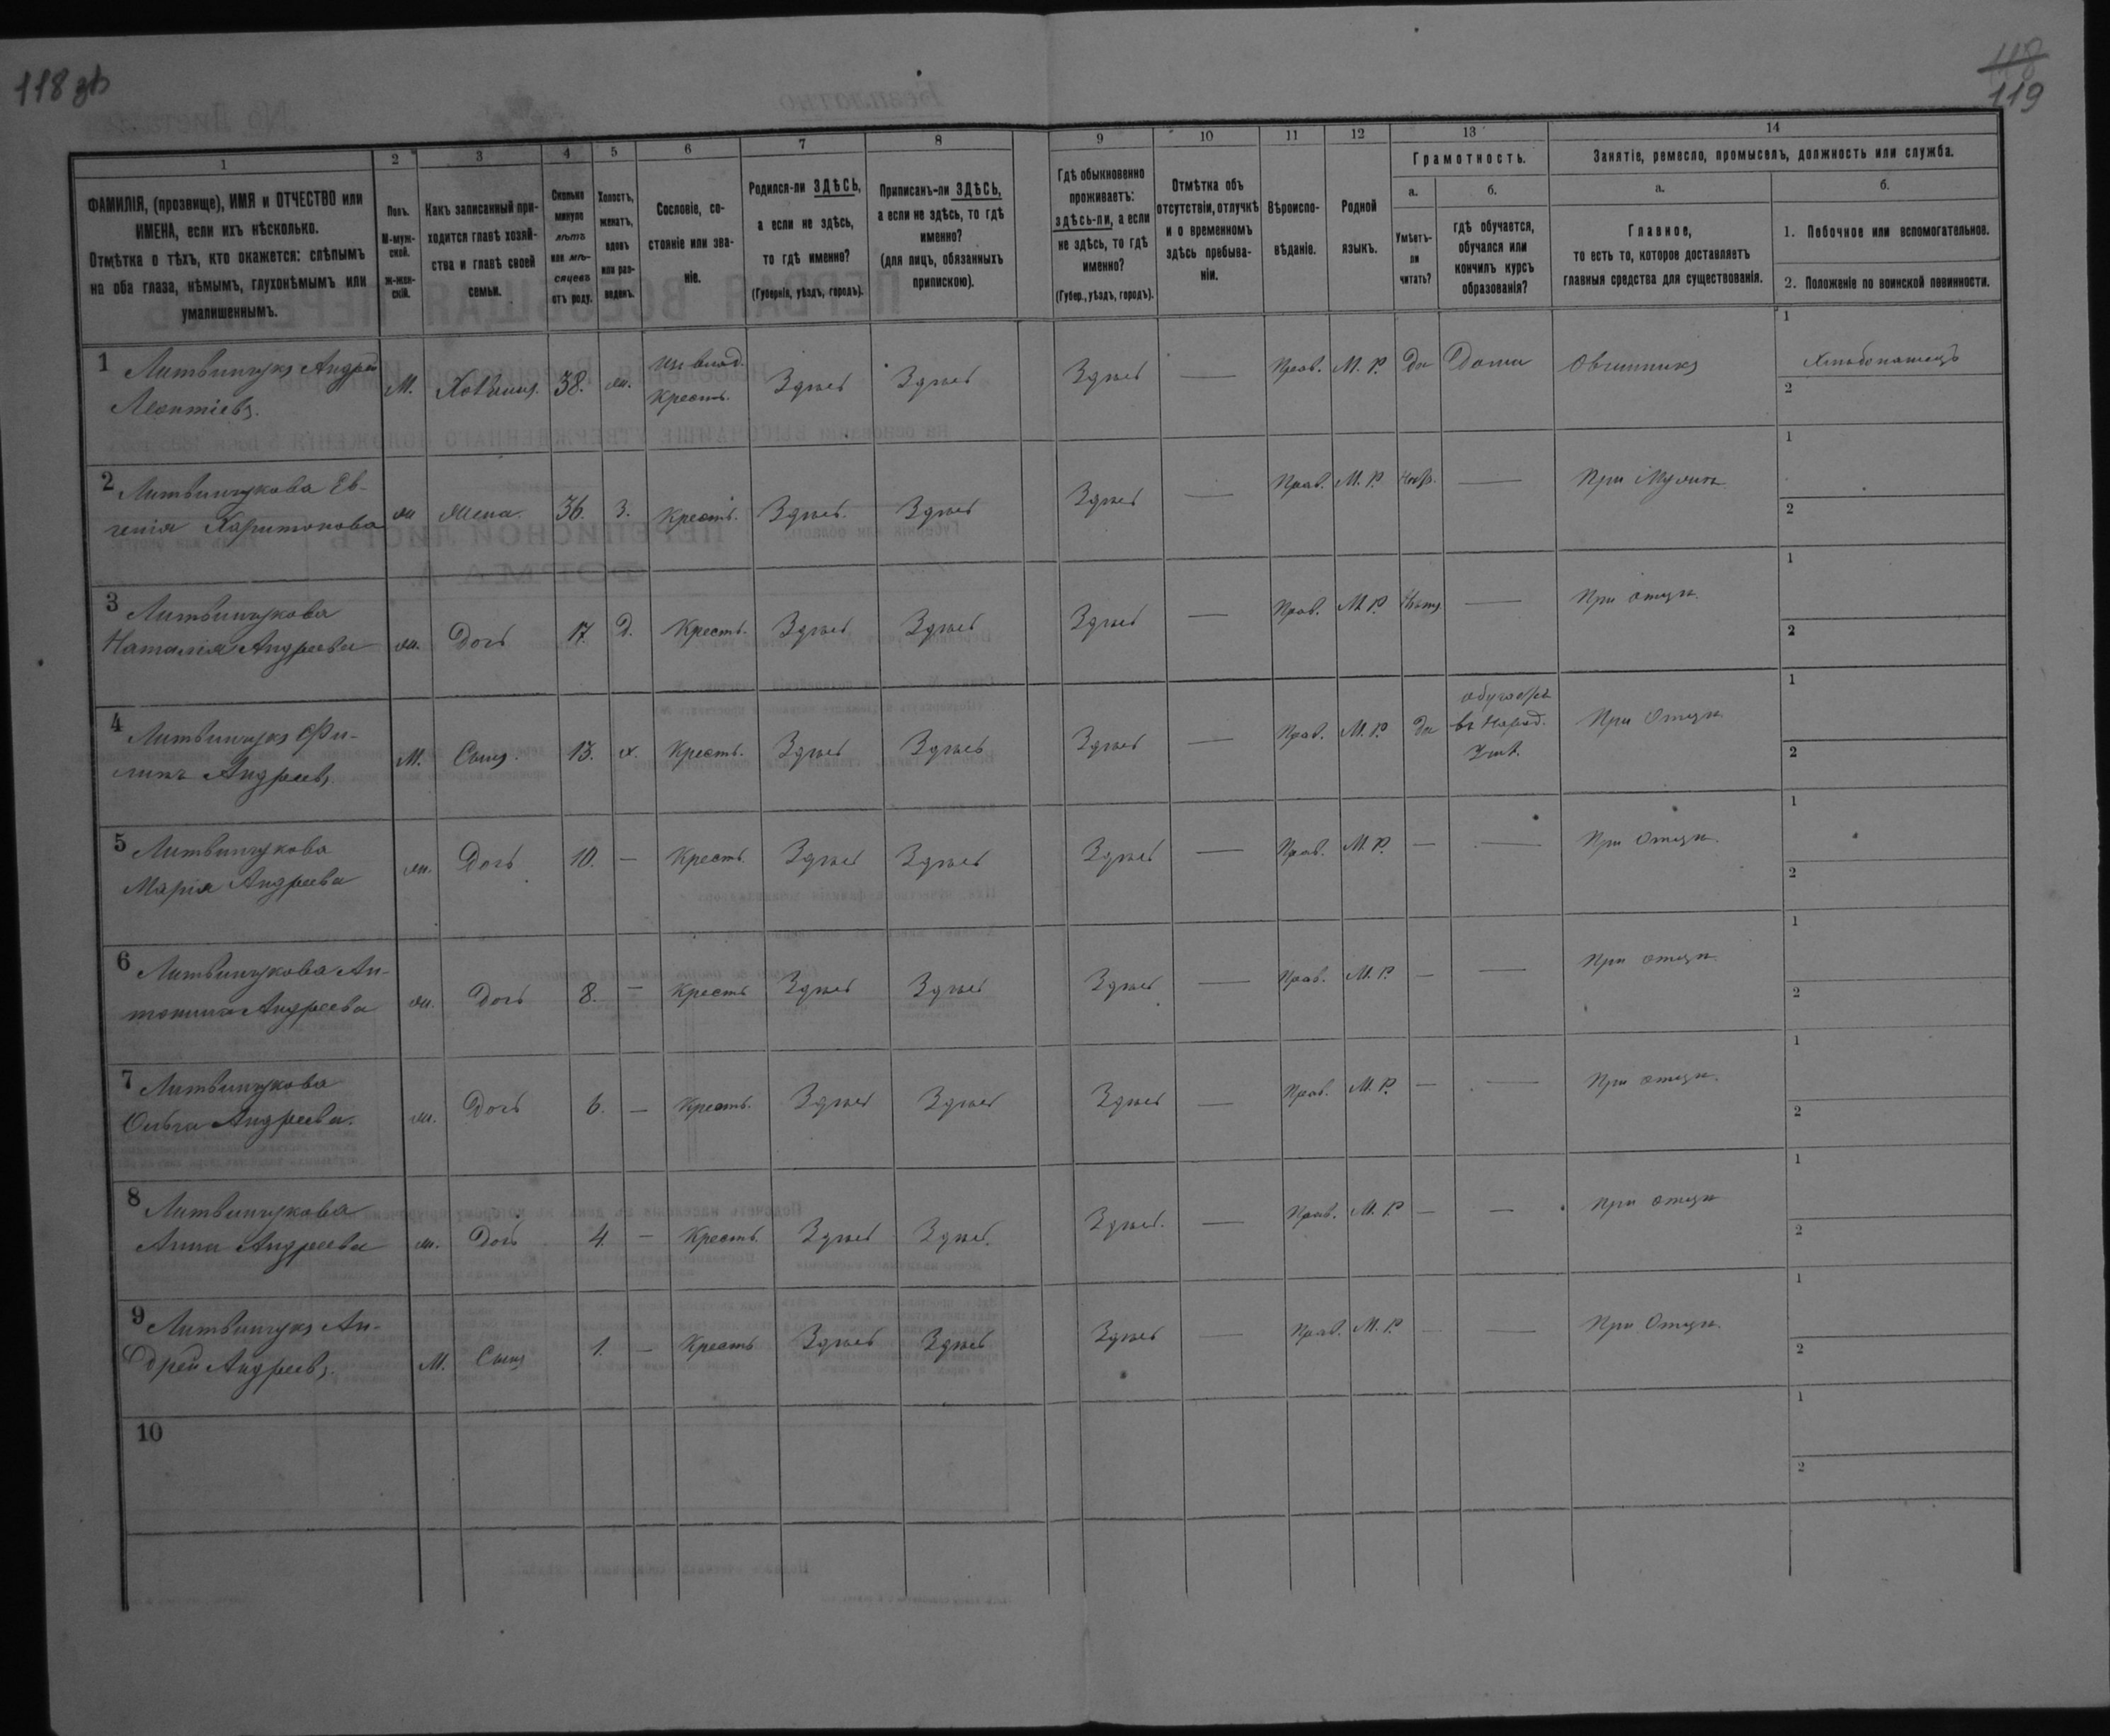 118 зв
118
119
1 2 3 4 5 6 7 8 9 10 11 12 13 14
ФАМИЛІЯ, (прозвище), ИМЯ и ОТЧЕСТВО или
ИМЕНА, если ихъ нѣсколько.
Отмѣтка о тѣхъ, кто окажется: слѣпымъ
на оба глаза, нѣмымъ, глухонѣмымъ или
умалишеннымъ.
Полъ.
М-муж-
ской.
Ж-жен-
скій.
Какъ записанный при-
ходится главѣ хозяй-
ства и главѣ своей
семьи.
Сколько
минуло
лѣтъ
или мѣ-
сяцевъ
отъ роду.
Холостъ,
женатъ,
вдовъ
или раз-
веденъ.
Сословіе, со-
стояніе или зва-
ніе.
Родился-ли ЗДѢСЬ,
а если не здѣсь,
то гдѣ именно?
(Губернія, уѣздъ, городъ).
Приписанъ-ли ЗДѢСЬ,
а если не здѣсь, то гдѣ
именно?
(для лицъ, обязанныхъ
припискою).
Гдѣ обыкновенно
проживаетъ:
здѣсь-ли, а если
не здѣсь, то гдѣ
именно?
(Губер., уѣздъ, городъ).
Отмѣтка объ
отсутствіи, отлучкѣ
и о временномъ
здѣсь пребыва-
ніи.
Вѣроиспо-
вѣданіе.
Родной
языкъ.
Грамотность.
а.
Умѣетъ-
ли
читать?
б.
гдѣ обучается,
обучался или
кончилъ курсъ
образованія?
Занятіе, ремесло, промыселъ, должность или служба.
а.
Главное,
то есть то, которое доставляетъ
главныя средства для существованія.
б.
1. Побочное или вспомогательное.
2. Положеніе по воинской повинности.
1 Литвинчукъ Андрей
Леонтіевъ.
М. Хозяинъ. 38. ж. Из влад.
Крестъ. Здѣсь Здѣсь Здѣсь — Прав. М. Р. Да Дома Овчинникъ
1 Хлѣбопашецъ
2
2 Литвинчукова Ев-
генія Харитонова
ж Жена. 36. З. Крестъ. Здѣсь Здѣсь Здѣсь — Прав. М. Р. Нѣтъ. — При Мужѣ
1
2
3 Литвинчукова
Наталія Андреева
ж. Дочь 17. Д. Крестъ. Здѣсь Здѣсь Здѣсь — Прав. М. Р. Нѣтъ — При отцѣ.
1
2
4 Литвинчукъ Фи-
липъ Андреевъ.
М. Сынъ. 13. х. Крестъ. Здѣсь Здѣсь Здѣсь — Прав. М. Р. Да
въ Народ.
При Отцѣ
1
2
5 Литвинчукова
Марія Андреева
ж. Дочь 10. — Крестъ. Здѣсь Здѣсь Здѣсь — Прав. М. Р. — — При Отцѣ.
1
2
6 Литвинчукова Ан-
тонина Андреева
ж. Дочь 8. — Крестъ Здѣсь Здѣсь Здѣсь — Прав. М. Р. — — При отцѣ.
1
2
7 Литвинчукова
Ольга Андреева.
ж. Дочь 6. — Крестъ. Здѣсь Здѣсь Здѣсь — Прав. М. Р. — — При отцѣ.
1
2
8 Литвинчукова
Анна Андреева
ж. Дочь 4. — Крестъ. Здѣсь Здѣсь Здѣсь. — Прав. М. Р. — — При отцѣ
1
2
9 Литвинчукъ Ан-
дрей Андреевъ.
М. Сынъ 1. — Крестъ Здѣсь Здѣсь Здѣсь — Прав. М. Р. — — При Отцѣ.
1
2
10
1
2